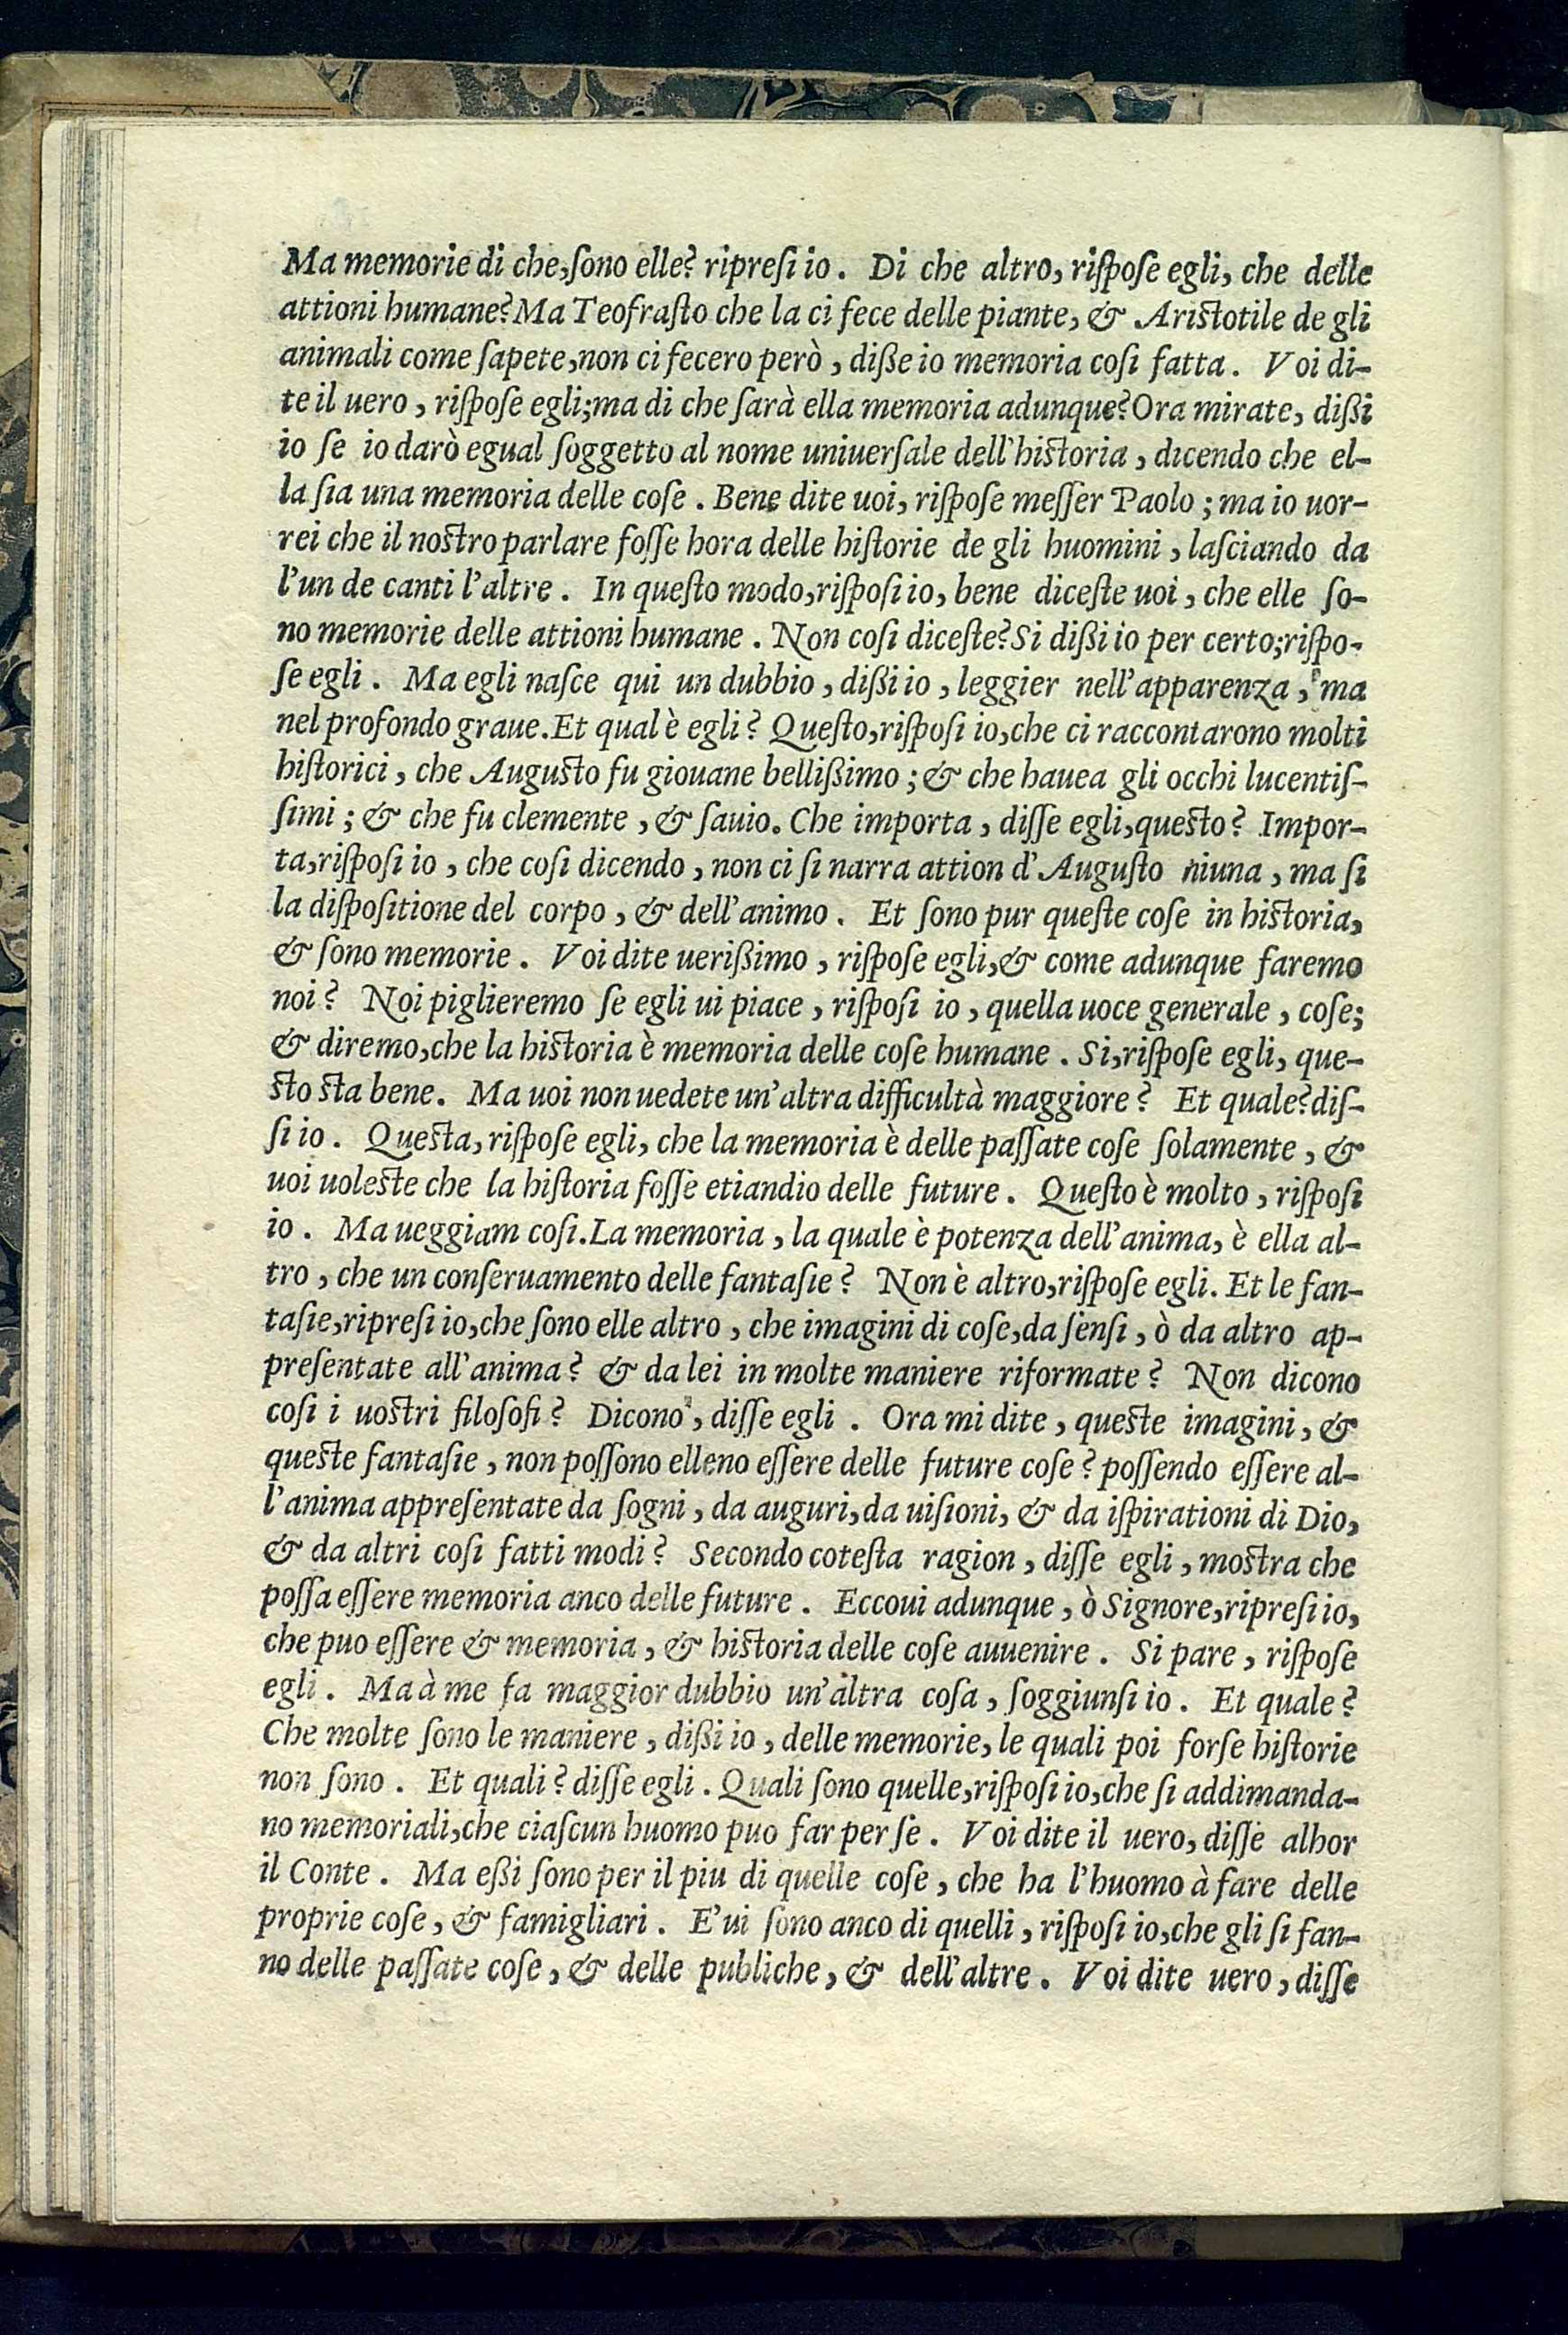 Ma memorie di che,ſono elle? ripreſi io. Di che altro, riſpoſe egli, che delle
attioni humane? Ma Teofraſto che la ci fece delle piante, & Ariſtotile de gli
animali come ſapete, non ci fecero però, dißе io memoria coſi fatta. Voi di-
te il uero, riſpoſe egli; ma di che ſarà ella memoria adunque? Ora mirate, dißi
io ſe io darò egual ſoggetto al nome uniuerſale dell'hiſtoria, dicendo che el-
la ſia una memoria delle coſe. Bene dite uoi, riſpoſe meſſer Paolo; ma io uor-
rei che il noſtro parlare foſſe hora delle hiſtorie de gli huomini, laſciando da
l'un de canti l'altre. In queſto modo, riſpoſi io, bene diceſte uoi, che elle ſo-
no memorie delle attioni humane. Non coſi diceſte? Si dißi io per certo; riſpo-
ſe egli. Ma egli naſce qui un dubbio, dißi io, leggier nell'apparenza, ma
nel profondo graue. Et qual è egli? Queſto, riſpoſi io, che ci raccontarono molti
hiſtorici, che Auguſto fu giouane bellißimo; & che hauea gli occhi lucentiſ-
ſimi; & che fu clemente, & ſauio. Che importa, diſſe egli, queſto? Impor-
ta, riſpoſi io, che coſi dicendo, non ci ſi narra attion d'Auguſto niuna, ma ſi
la diſpoſitione del corpo, & dell'animo. Et ſono pur queſte coſe in hiſtoria,
& ſono memorie. Voi dite uerißimo, riſpoſe egli, & come adunque faremo
noi? Noi piglieremo ſe egli ui piace, riſpoſi io, quella uoce generale, coſe;
& diremo, che la hiſtoria è memoria delle coſe humane. Si, riſpoſe egli, que-
ſto ſta bene. Ma uoi non uedete un'altra difficultà maggiore? Et quale? diſ-
ſi io. Queſta, riſpoſe egli, che la memoria è delle paſſate coſe ſolamente, &
uoi uoleſte che la hiſtoria foſſe etiandio delle future. Queſto è molto, riſpoſi
io. Ma ueggiam coſi. La memoria, la quale è potenza dell'anima, è ella al-
tro, che un conſeruamento delle fantaſie? Non è altro, riſpoſe egli. Et le fan-
taſie, ripreſi io, che ſono elle altro, che imagini di coſe, da ſenſi, ò da altro ap-
preſentate all'anima? & da lei in molte maniere riformate? Non dicono
coſi i uoſtri filoſofi? Dicono, diſſe egli. Ora mi dite, queſte imagini, &
queſte fantaſie, non poſſono elleno eſſere delle future coſe? poſſendo eſſere al-
l'anima appreſentate da ſogni, da auguri, da uiſioni, & da iſpirationi di Dio,
& da altri coſi fatti modi? Secondo coteſta ragion, diſſe egli, moſtra che
poſſa eſſere memoria anco delle future. Eccoui adunque, ò Signore, ripreſi io,
che puo eſſere & memoria, & hiſtoria delle coſe auuenire. Si pare, riſpoſe
egli. Ma à me fa maggior dubbio un'altra coſa, ſoggiunſi io. Et quale?
Che molte ſono le maniere, dißi io, delle memorie, le quali poi forſe hiſtorie
non ſono. Et quali? diſſe egli. Quali ſono quelle, riſpoſi io, che ſi addimanda-
no memoriali, che ciaſcun huomo puo far per ſe. Voi dite il uero, diſſe alhor
il Conte. Ma eßi ſono per il piu di quelle coſe, che ha l'huomo à fare delle
proprie coſe, & famigliari. E'ui ſono anco di quelli, riſpoſi io, che gli ſi fan-
no delle paſſate coſe, & delle publiche, & dell'altre. Voi dite uero, diſſe